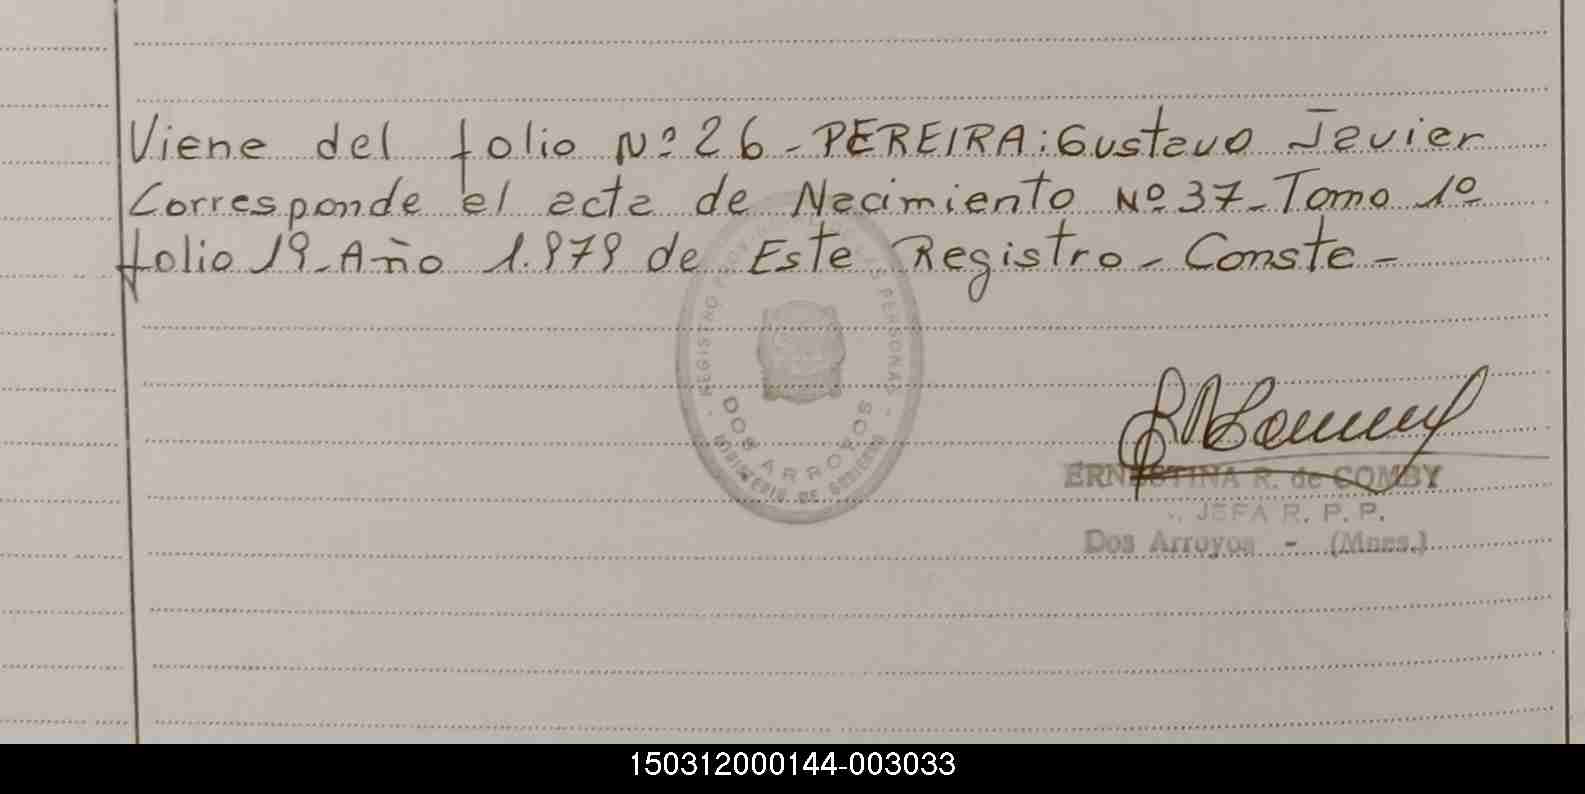 Viene del folio Nº 26 - PEREIRA: Gustavo Javier
Corresponde el acta de Nacimiento Nº 37 - Tomo 1º
folio 19 - Año 1.979 de Este Registro - Conste -
REGISTRO PERSONAS
DOS ARROYOS
MINISTERIO DE GOBIERNO
ERNESTINA R. de COMBY
JEFA R. P. P.
Dos Arroyos - (Mnes.)
150312000144-003033